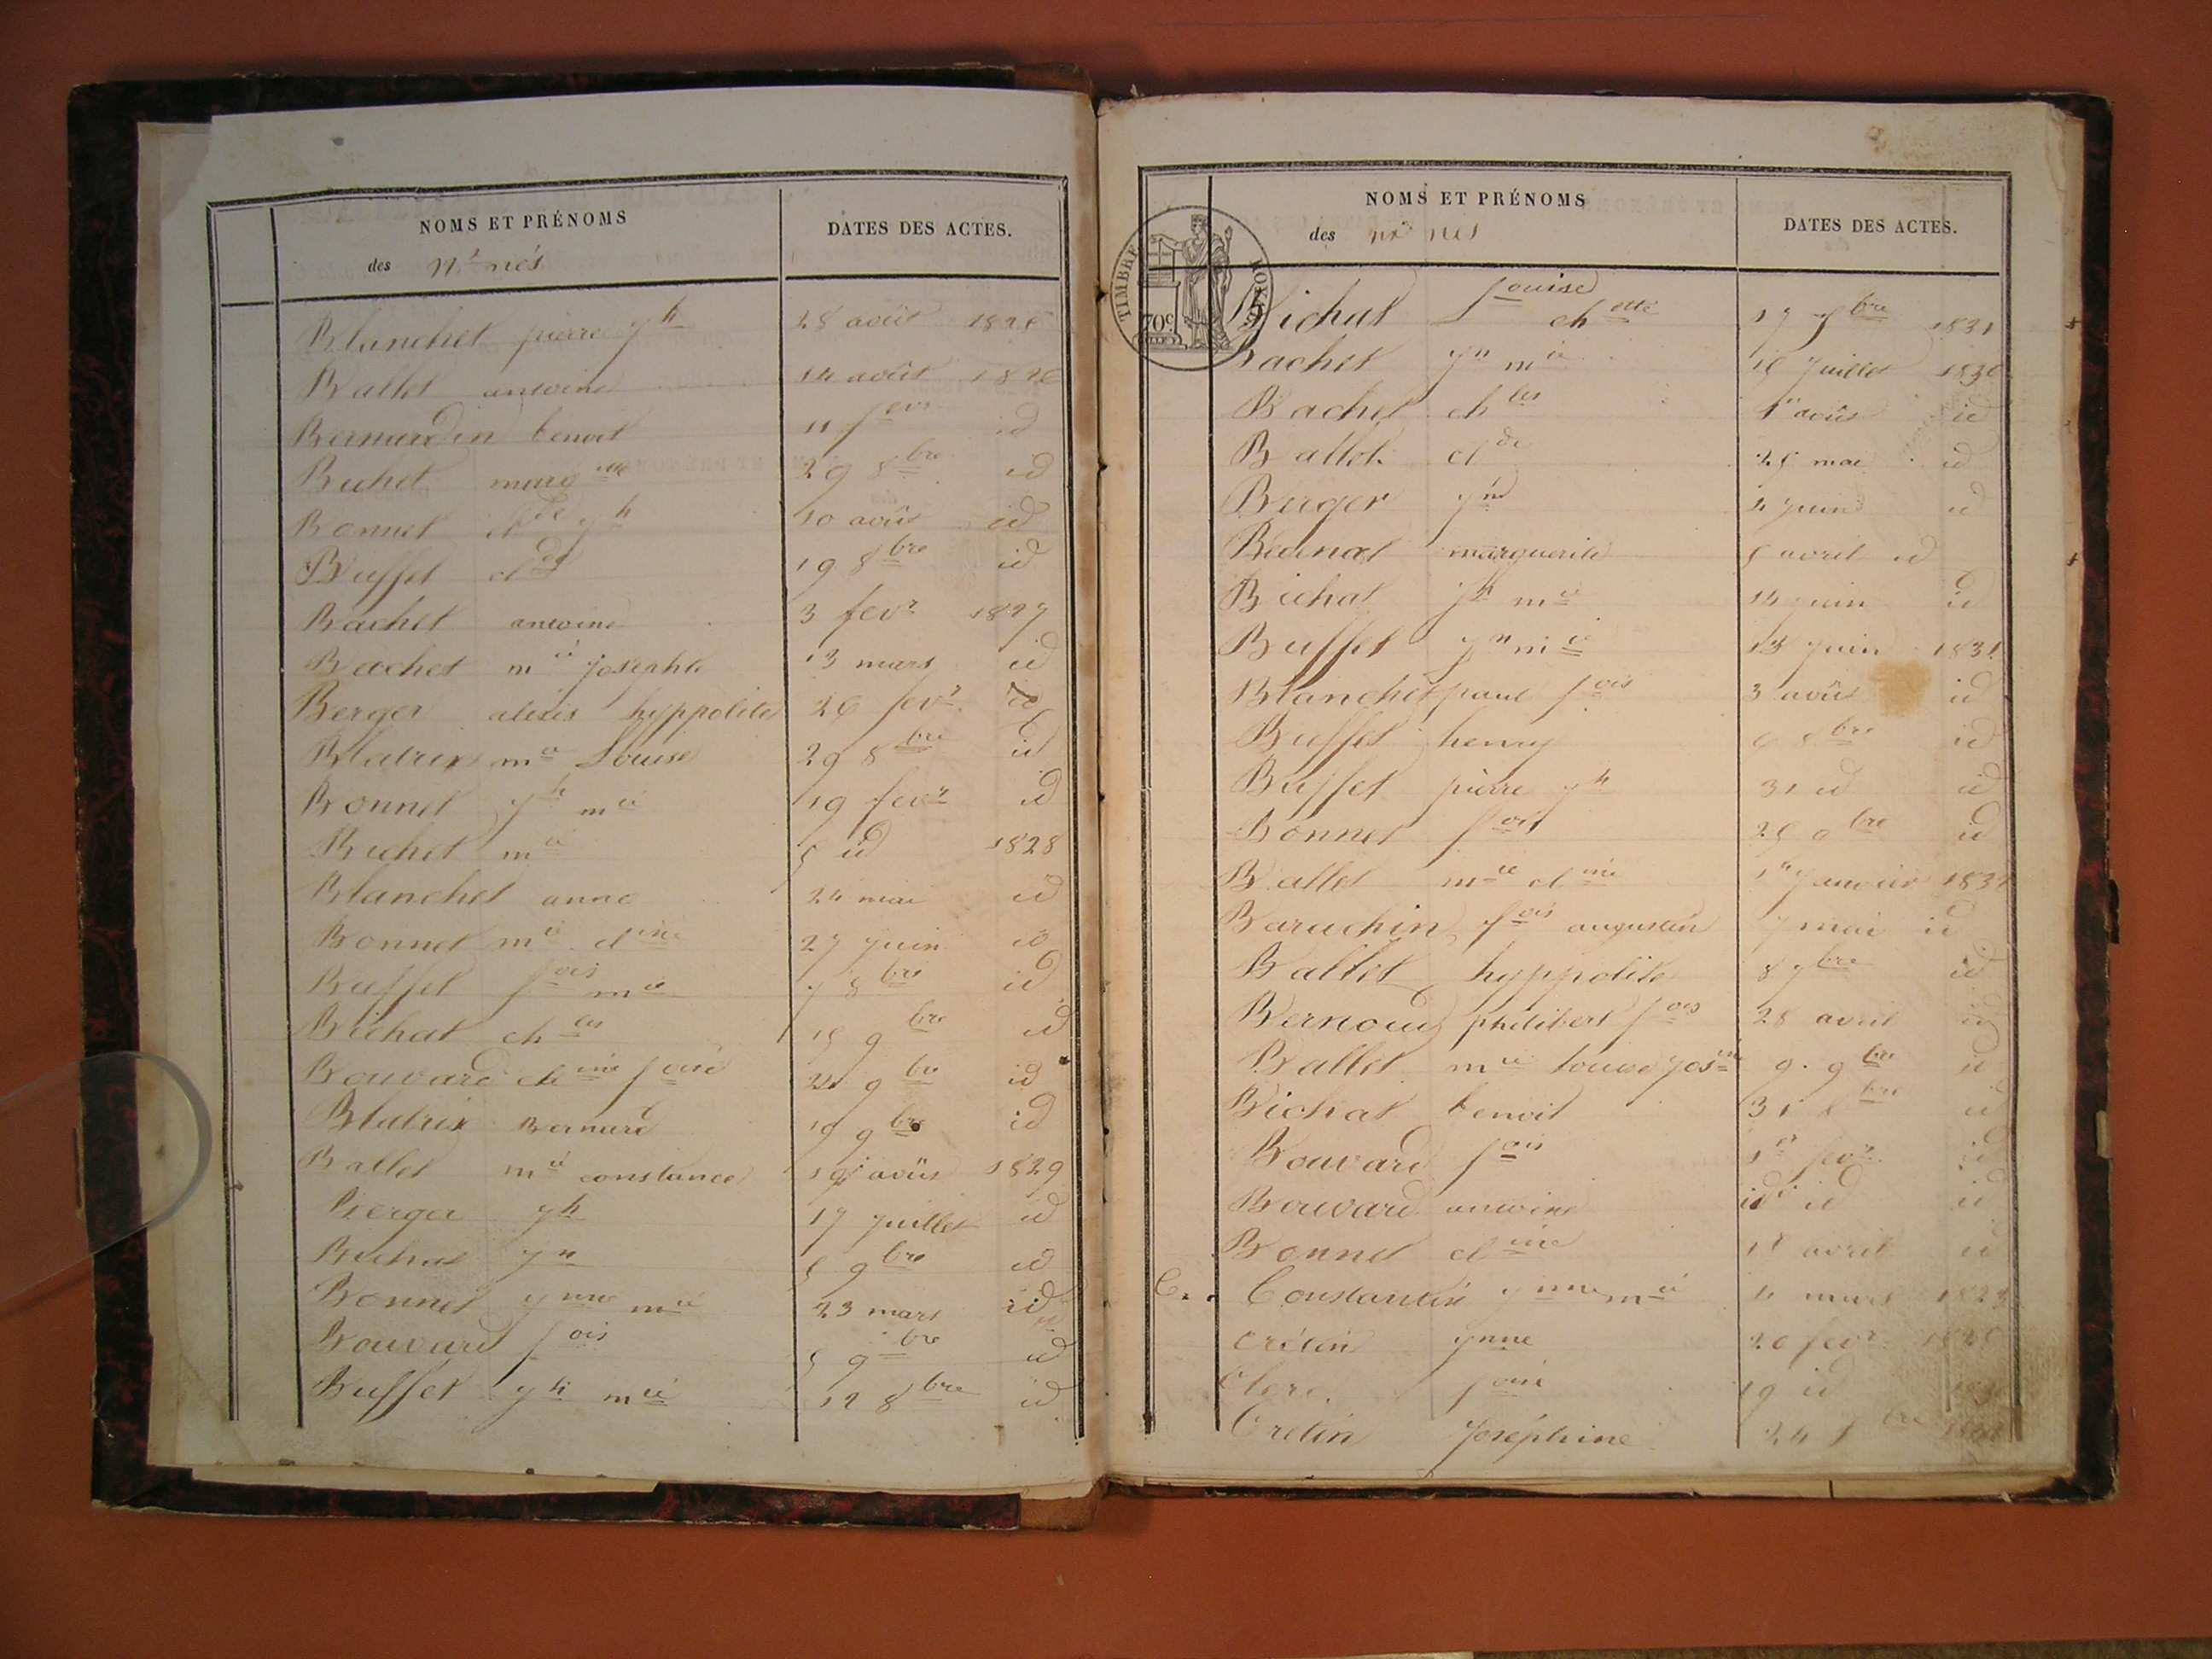 NOMS ET PRÉNOMS
DATES DES ACTES.
des nx nés
Blanchet pierre jh 28 août
Ballet antoine 14 août 1826
Bernardin benoit 11 fevr id
Buhet marg itte 29 8bre id
Bonnet cl de jh 10 août id
Buffet cl de 19 8bre id
Bachet antoine 3 fevr 1827
Bachet mie josephte 13 mars id
Berger alexis hyppolite 26 fevr id
Blatrix mie Louise 29 8bre id
Bonnet jh mie 19 fevr id
Buhet mie 5 id 1828
Blanchet anne 24 mai id
Bonnet mie cl ine 27 juin id
Buffet fois mie 7 8bre id
Bichat ch les 15 9bre id
Bouvard foise 9bre id
Blatrix Bernard 19 9bre id
Ballet mie constance 19 août 1829
Berger jh 17 juillet id
Bichat jn 5 9bre id
Bonnet jnne mie 23 mars id
Bouvard fois 5 9bre id
Buffet jh mie 12 8bre id
NOMS ET PRÉNOMS
DATES DES ACTES.
des nx nés
TIMBRE ROYAL
70c
Bichat Louise ch otte 17 1831
Bachet jn mie 15 juillet 1830
Bachet ch les 1er août id
Ballet cl de 25 mai id
Berger 4 juin id
marguerite 5 avril id
Bichat jh mie 14 juin id
Buffet jn mie 18 juin 1831
Blanchet paul fois 3 août id
Buffet henry 8bre id
Buffet pierre jh 31 id id
Bonnet fois 25 9bre id
Ballet mie cl ine 1er janvier 1832
Baruchin fois augustin 7 mai id
Ballet hyppolite 8 7bre id
Bernoud philibert fois 28 avril id
Ballet mie louise jos 9 9bre id
Bichat benoit 31 bre id
Bouvard fois 1er fevr id
Bouvard antoine id id id
Bonnet cl ine avril id
C. Constantin jnne mie 4 mars
Crétin jnne 20 fevr
Clerc foise 19 id
Cretin Joséphine 24